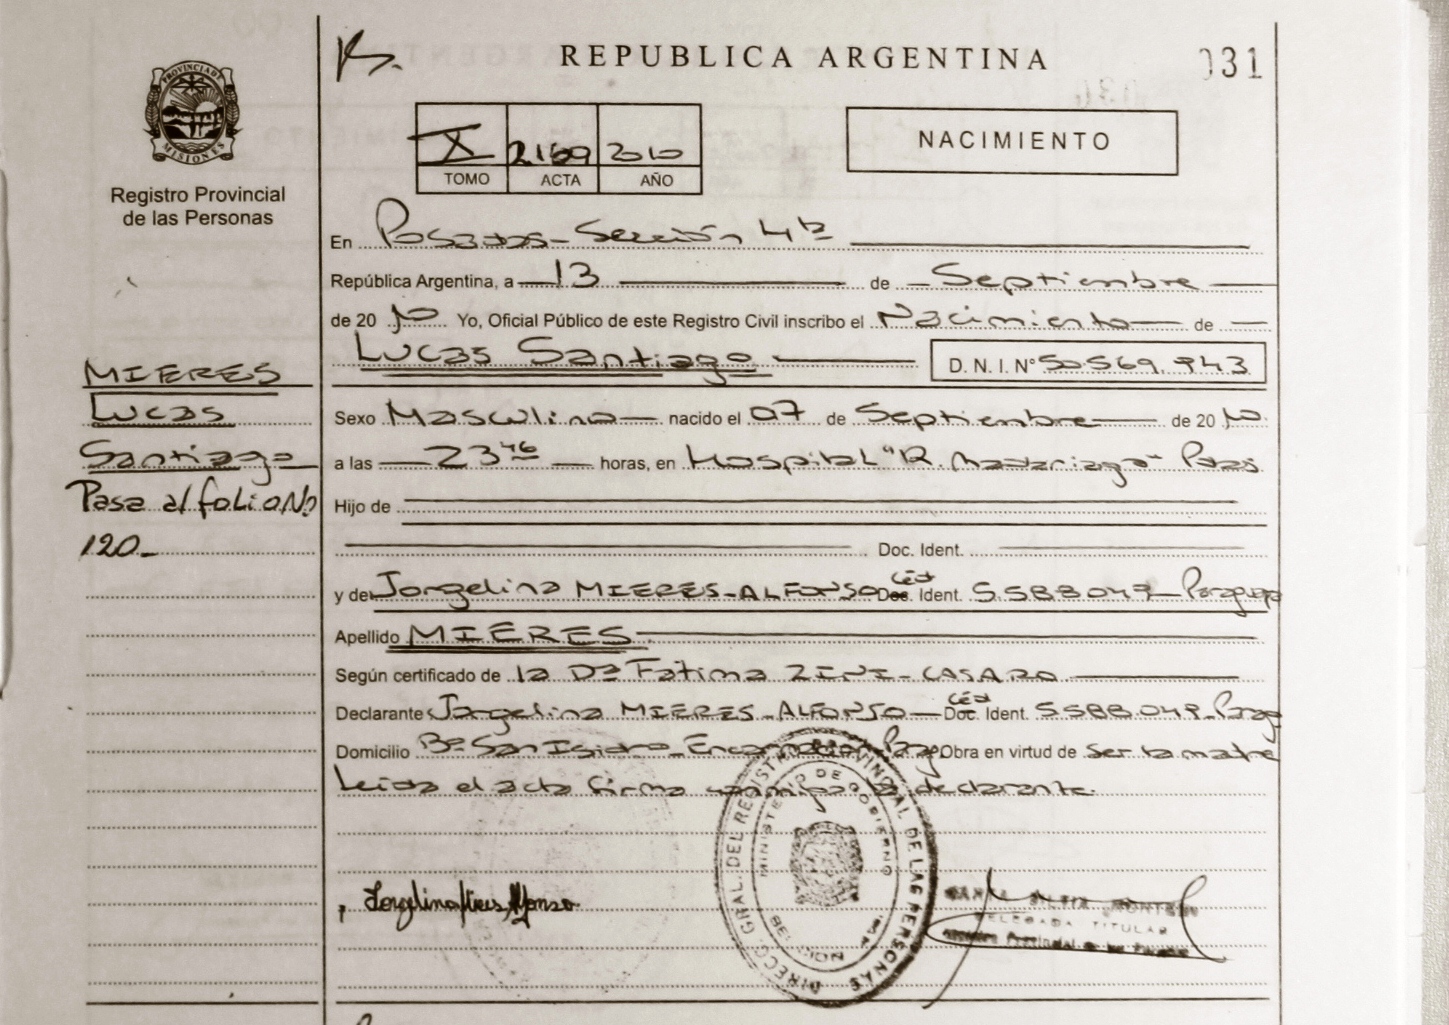 REPUBLICA ARGENTINA
031
PROVINCIA DE MISIONES
Registro Provincial
de las Personas
X 2169 2010
TOMO ACTA AÑO
NACIMIENTO
En Posadas - Sección 4ta
República Argentina, a 13 de Septiembre
de 20 10 Yo, Oficial Público de este Registro Civil inscribo el Nacimiento de
Lucas Santiago D. N. I. N° 50.569.943
MIERES
Lucas
Santiago
Pasa al folio Nº
120-
Sexo Masculino nacido el 07 de Septiembre de 20 10
a las 23 46 horas, en Hospital "R. Madariaga" Pdas
Hijo de
Doc. Ident.
y de Jorgelina MIERES-ALFONSO Céd Doc. Ident. 5.588.049 - Paraguay
Apellido MIERES
Según certificado de la Dra Fatima ZINI-CASARO
Declarante Jorgelina MIERES-ALFONSO Céd Doc. Ident. 5.588.049 - Parag
Domicilio Bº San Isidro - Encarnación Parag Obra en virtud de ser la madre
Leida el acta firma conmigo la declarante.
DIRECC. GRAL. DEL REGISTRO PROVINCIAL DE LAS PERSONAS
MINISTERIO DE GOBIERNO
Jorgelina Mieres Alfonso
DELEGADA TITULAR
Registro Provincial de las Personas